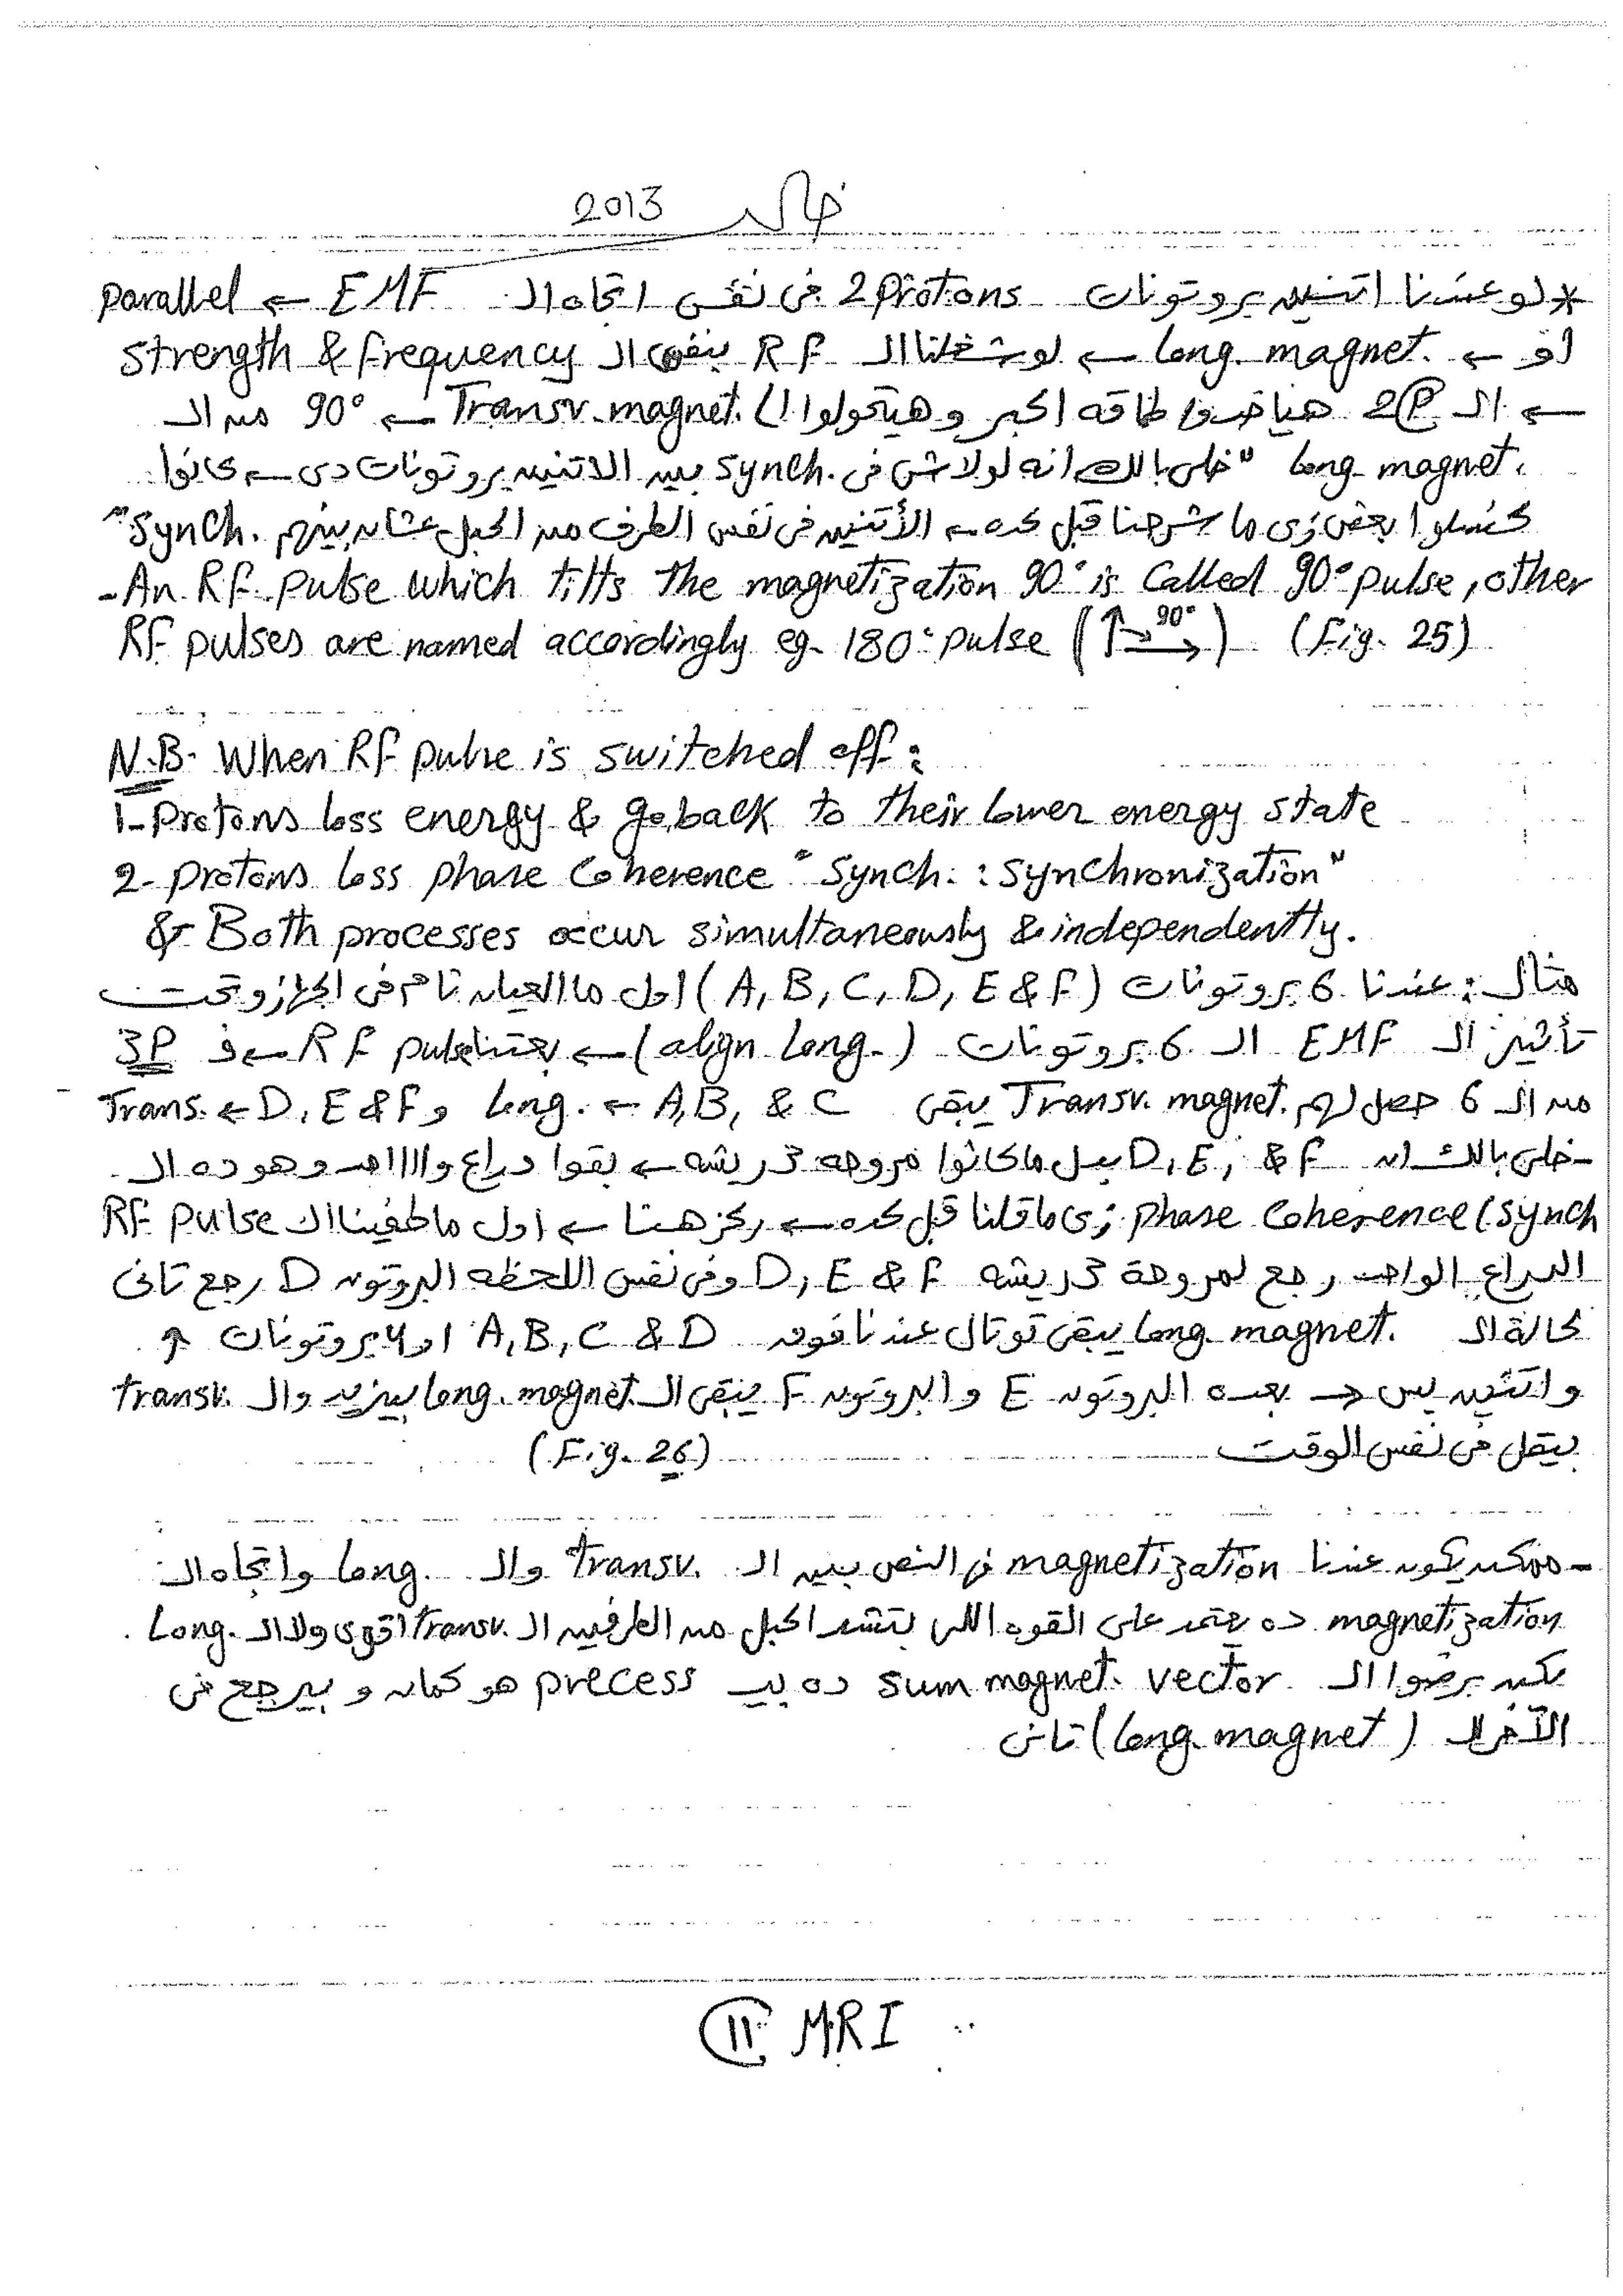 خالد 2013
* لو عندنا اتنين بروتونات 2 protons فى نفس اتجاه الـ EMF ← parallel
أو ← long. magnet. ← لو شغلنا الـ RF بنفس الـ strength & frequency
← الـ 2P هياخدوا طاقه اكبر وهيتحولوا لـ Transv. magnet. ← 90° من الـ
long magnet. "خلى بالك انه لولا شئ فى synch. بين الاتنين بروتونات دى ← كانوا
كنسلوا بعض زى ما شرحنا قبل كده ← الأتنين فى نفس الطرف من الحبل عشان بينهم synch."
- An RF pulse which tilts the magnetization 90° is called 90° pulse, other
RF pulses are named accordingly eg. 180° pulse (↑→ 90°) (Fig. 25)
N.B. When RF pulse is switched off:
1- Protons loss energy & go back to their lower energy state
2- protons loss phase coherence "Synch. : synchronization"
& Both processes occur simultaneously & independently.
مثال: عندنا 6 بروتونات (A, B, C, D, E & F) اول ما العيان نام فى الجهاز وتحت
تأثير الـ EMF الـ 6 بروتونات (align long.) ← بعتنا pulse RF ← فـ 3P
من الـ 6 حصل لهم Transv. magnet. يبقى A, B, & C ← long. و D, E & F ← Trans.
- خلى بالك ان D, E, & F بدل ما كانوا مروحه 3 ريشه ← بقوا دراع واااحد وهو ده الـ
phase coherence (synch زى ما قلنا قبل كده ← ركز هنا ← اول ما طفينا الـ RF pulse
الدراع الواحد رجع لمروحة 3 ريشه D, E & F وفى نفس اللحظه البروتون D رجع تانى
لحالة الـ long. magnet. يبقى توتال عندنا فوق A, B, C & D او 4 بروتونات ↑
واتنين بس → بعده البروتون E والبروتون F يبقى الـ long. magnet. بيزيد والـ transv.
بيقل فى نفس الوقت (Fig. 26)
- ممكن يكون عندنا magnetization فى النص بين الـ transv. والـ long. واتجاه الـ
magnetization ده يعتمد على القوه اللى بتشد الحبل من الطرفين الـ transv. اقوى ولا الـ long.
لكن برضوا الـ sum magnet. vector ده بيـ precess هو كمان و بيرجع فى
الآخر لـ (long. magnet) تانى
11 MRI